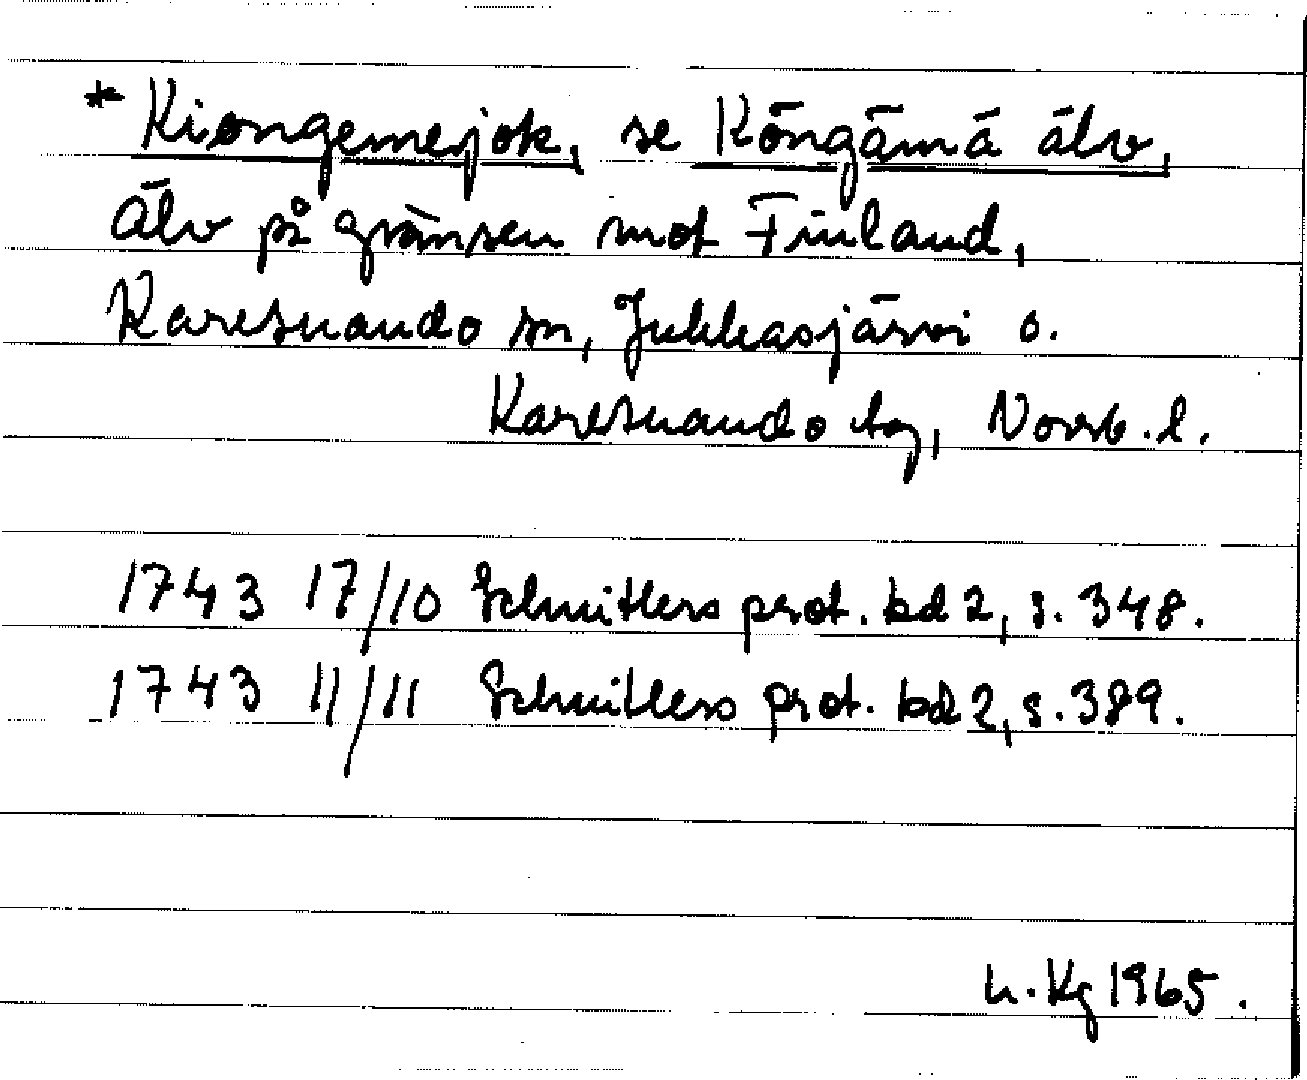 * Kiongemejok, se Köngämä älv,
älv på gränsen mot Finland,
Karesuando sn, Jukkasjärvi o.
Karesuando tg, Norrb. l.
1743 17/10 Schnitlers prot. bd 2, s. 348.
1743 11/11 Schnitlers prot. bd 2, s. 389.
h. Kg 1965.